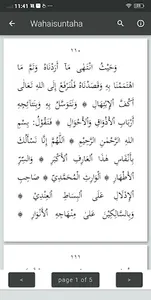 11:41
Wahaisuntaha
١١٠
وَحَيْثُ انْتَهَى مَا أَرَدْنَاهُ وَتَمَّ مَا
اهْتَمَمْنَا بِهِ وَقَصَدْنَاهُ فَلْنَرْفَعْ إِلَى اللهِ تَعَالَى
أَكُفَّ الْإِبْتِهَالِ ۞ وَنَتَوَسَّلُ بِهِ وَبِنَتَائِجِهِ
أَرْبَابِ الْأَذْوَاقِ وَالْأَحْوَالِ ۞ فَنَقُولُ: بِسْمِ
اللهِ الرَّحْمَنِ الرَّحِيْمِ ۞ اَللَّهُمَّ إِنَّا نَسْأَلُكَ
بِأَنْفَاسِ هَذَا الْعَارِفِ الْأَكْبَرِ ۞ وَالسِّرِّ
الْأَظْهَرِ ۞ الْوَارِثِ الْمُحَمَّدِيِّ ۞ صَاحِبِ
الْإِدْلَالِ عَلَى الْبِسَاطِ الْعِنْدِيِّ ۞
وَبِالسَّالِكِيْنَ عَلَى مِنْهَاجِهِ الْأَنْوَارِ ۞
١١١
page 1 of 5